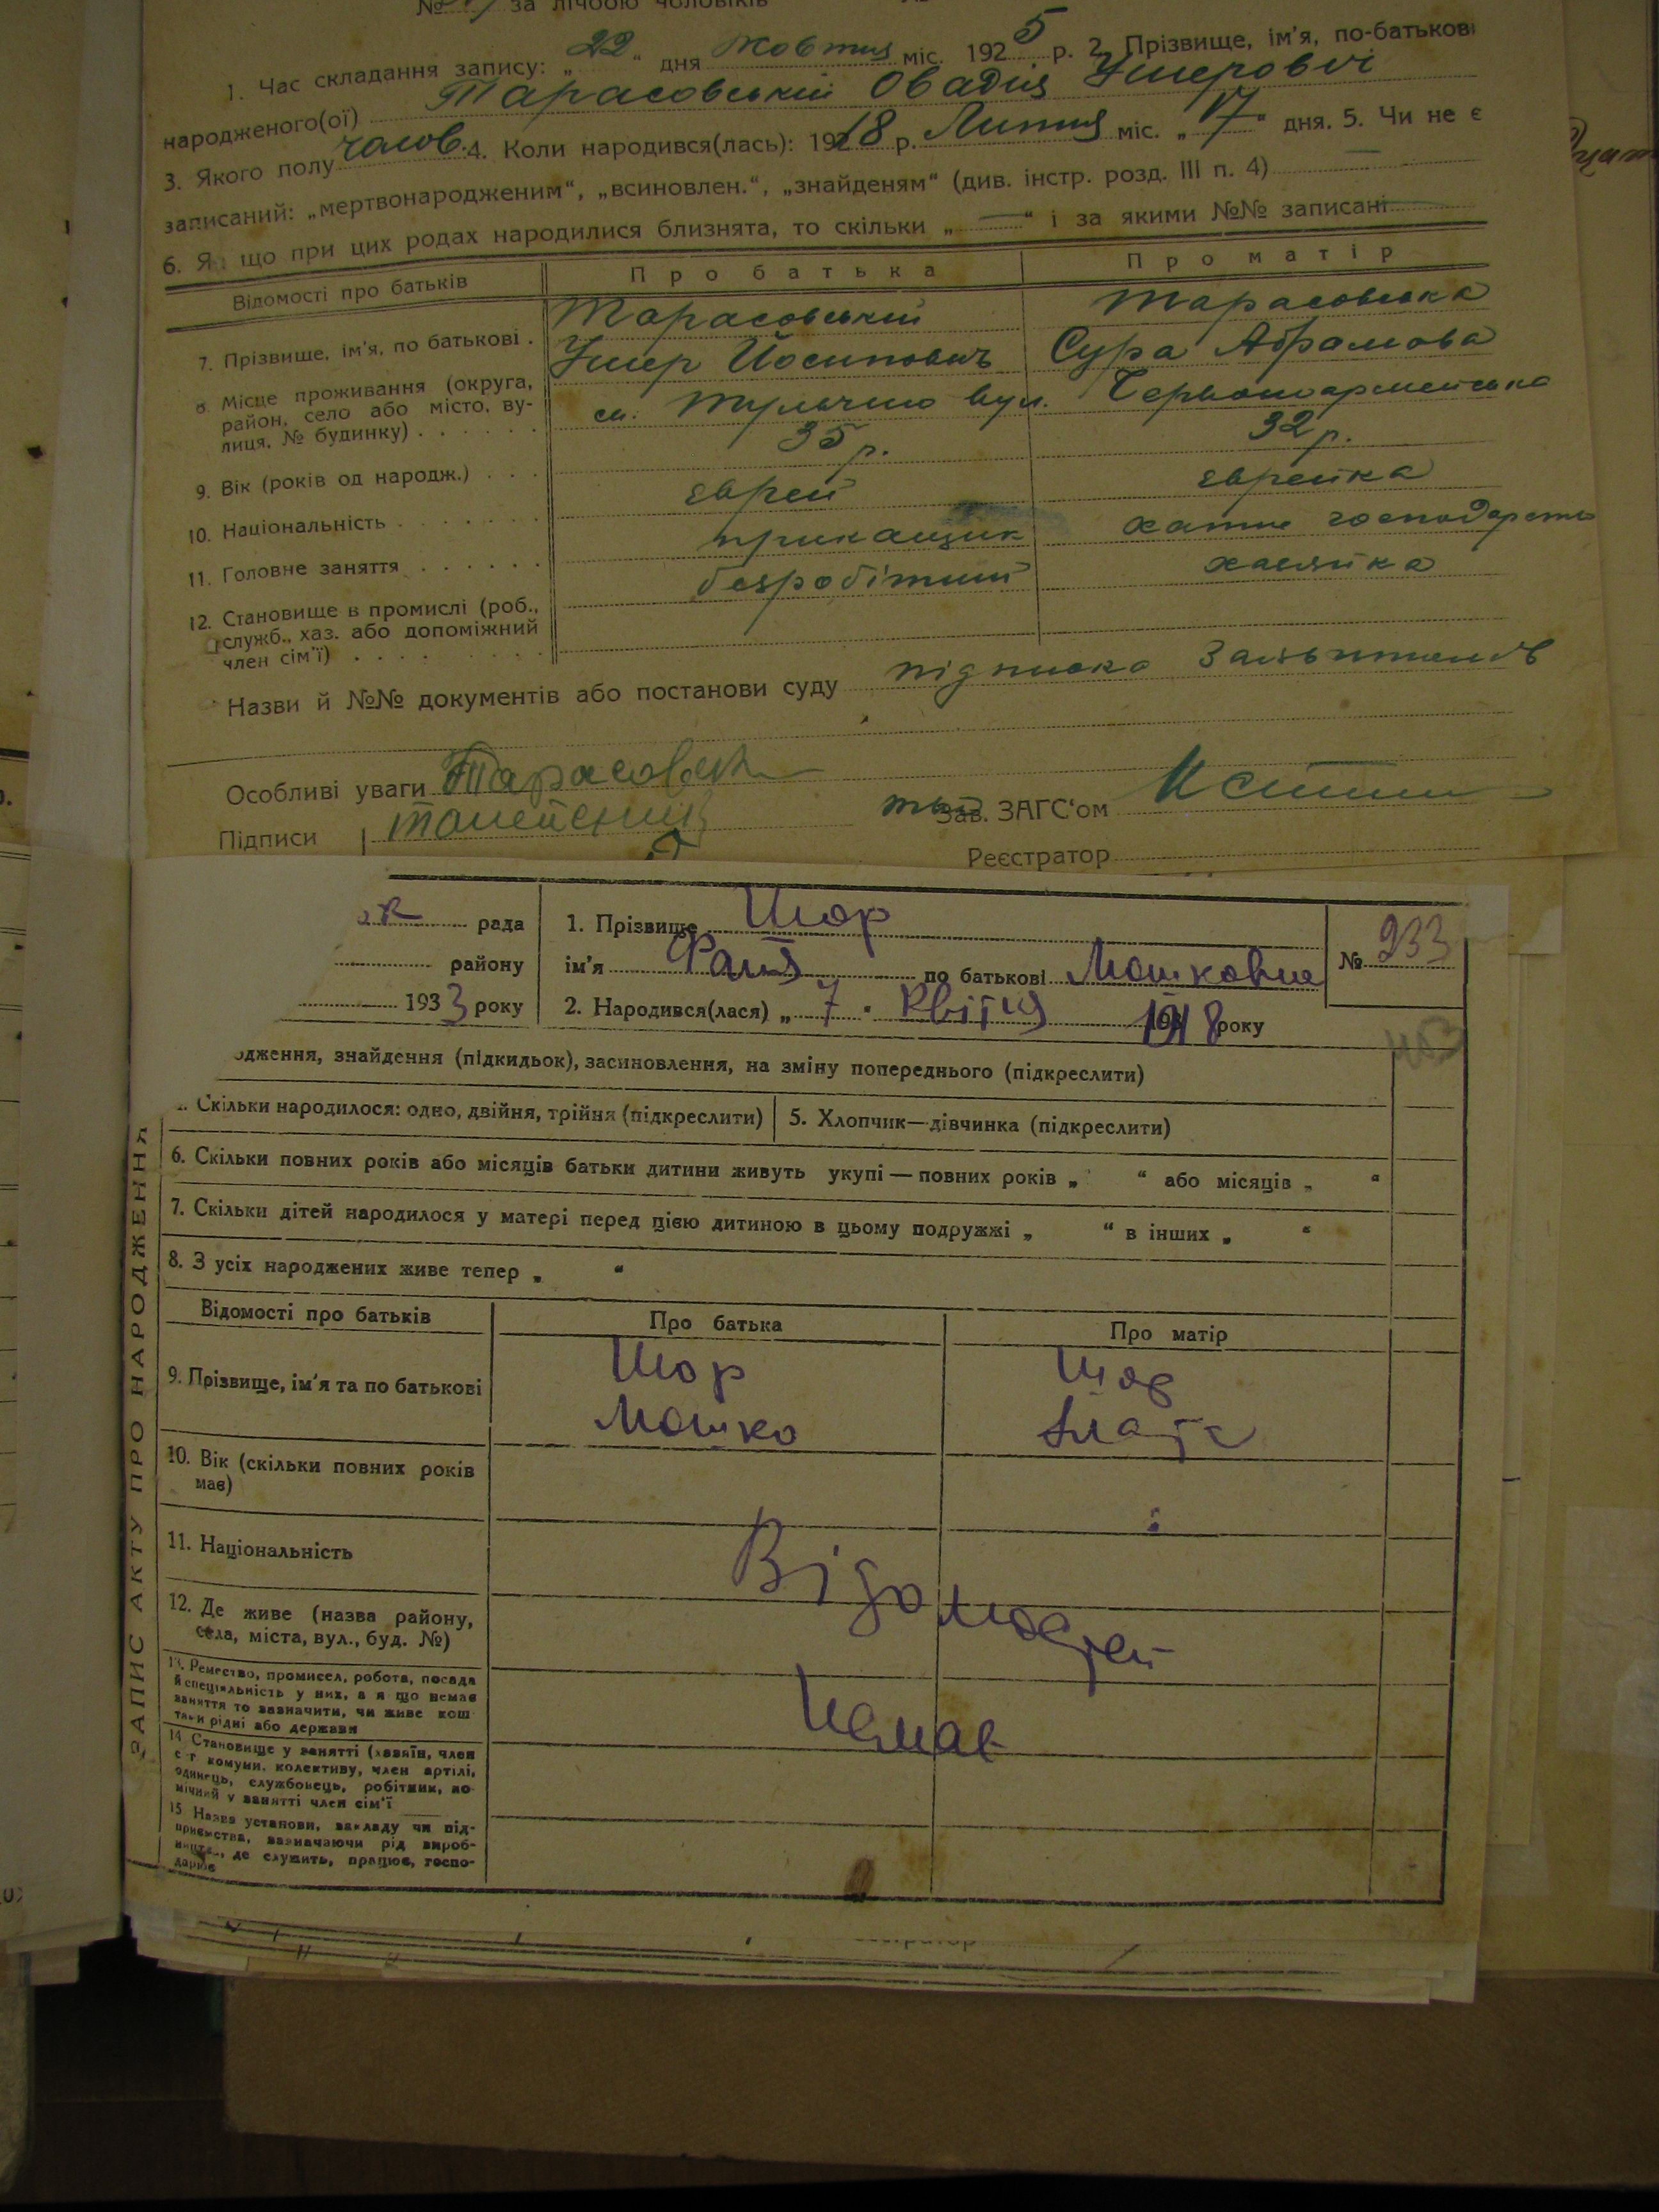 № за лічбою чоловіків
1. Час складання запису: „22“ дня Жовтня міс. 1925 р. 2. Прізвище, ім'я, по-батькові
народженого(ої) Тарасовський Овадія Умерович
3. Якого полу чолов. 4. Коли народився(лась): 1918 р. Липня міс. „17“ дня. 5. Чи не є
записаний: „мертвонародженим“, „всиновлен.“, „знайденям“ (див. інстр. розд. III п. 4)
6. Я що при цих родах народилися близнята, то скільки „—“ і за якими №№ записані
Відомості про батьків Про батька Про матір
7. Прізвище, ім'я, по батькові . Тарасовський Тарасовська
Умер Йосипович Сура Абрамова
8. Місце проживання (округа, район, село або місто, ву-
лиця, № будинку) . . . . . . м. Тульчин вул. Червоноармейська
9. Вік (років од народж.) . . . 35 р. 32 р.
10. Національність . . . . . . . еврей еврейка
11. Головне заняття . . . . . . прикащик хатне господарство
12. Становище в промислі (роб., служб., хаз. або допоміжний
член сім'ї) . . . . безробітний хазяйка
Назви й №№ документів або постанови суду підписка
Особливі уваги Тарасовськ
Підписи
Зав. ЗАГС'ом
Реєстратор
рада
району
1933 року
1. Прізвище Шор
ім'я Фаня по батькові Мошковна
2. Народився(лася) „7 . Квітня 1918 року
№ 233
одження, знайдення (підкидьок), засиновлення, на зміну попереднього (підкреслити)
Скільки народилося: одно, двійня, трійня (підкреслити) 5. Хлопчик—дівчинка (підкреслити)
6. Скільки повних років або місяців батьки дитини живуть укупі — повних років „ “ або місяців „ “
7. Скільки дітей народилося у матері перед цією дитиною в цьому подружжі „ “ в інших „ “
8. З усіх народжених живе тепер „ “
Відомості про батьків Про батька Про матір
9. Прізвище, ім'я та по батькові Шор Шор
Мошко Злата
10. Вік (скільки повних років
має)
11. Національність
Відомостей
12. Де живе (назва району,
села, міста, вул., буд. №)
13. Ремество, промисел, робота, посада
й спеціяльність у них, а я що немає
заняття то зазначити, чи живе кош
тами рідні або держави
Немає
14. Становище у занятті (хазяїн, член
с г комуни, колективу, член артілі,
одинець, службовець, робітник, по
мічний у занятті член сім'ї
15 Назва установи, закладу чи під-
приємства, зазначаючи рід вироб-
ництв., де служить, працює, госпо-
дарює
ЗАПИС АКТУ ПРО НАРОДЖЕННЯ